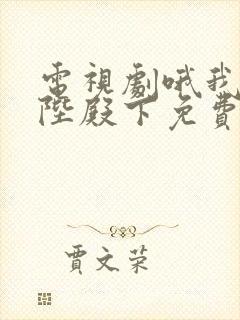 電視劇哦我
陛殿下免費
賈文荣